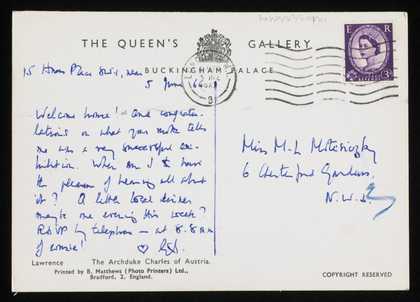 THE QUEEN'S GALLERY
BUCKINGHAM PALACE
E R
3D
15 Place S.W.1,
5 June 64
Welcome home! and congratu-
lations on what you tells
me was a very successful ex-
hibition. When do I have
the pleasure of hearing all about
it? A little local
maybe one evening this week?
RSVP by telephone — at 8.8 a.m
of course!
Miss M-L
6 Chesterford Gardens,
N.W.3
Lawrence The Archduke Charles of Austria.
Printed by B. Matthews (Photo Printers) Ltd.,
Bradford, 2, England.
COPYRIGHT RESERVED